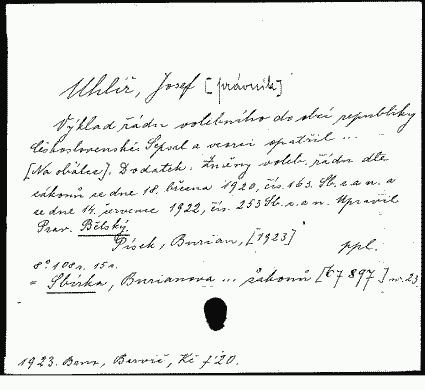 Uhlíř, Josef [právník]
Výklad řádu volebního do obcí republiky
Československé. Sepsal a vzorci opatřil ...
[Na obálce]. Dodatek: Změny voleb. řádu dle
zákonů ze dne 18. března 1920, čís. 163. Sb. z. a n. a
ze dne 14. července 1922, čís. 253 Sb. z. a n. Upravil
Prav. Bělský.
Písek, Burian, [1923]
ppl.
8° 108 s. 15 s.
= Sbírka, Burianova ... zákonů [67897] sv. 23
1923. Brno, Barvič, Kč 7.20.